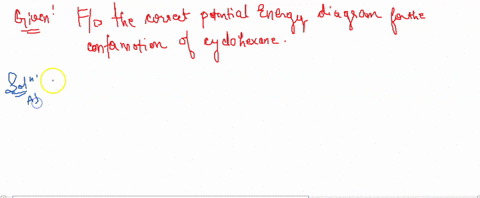 Given! F/o the correct potential Energy diagram for the
conformation of cyclohexane.
Solⁿ:
As